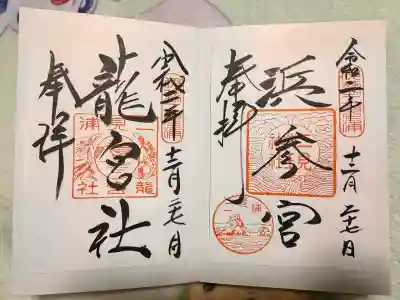 令和二年
十二月二七日
浜参宮
奉拝
令和二年
十二月二七日
龍宮社
奉拝